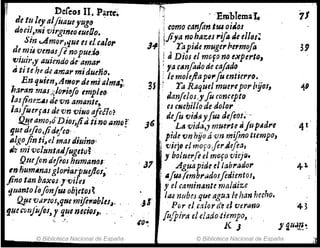 Deseos II. Parte.
de tu ley al suaue yugo
docil, mi virgineo cuello.
Sin Amor, que es el calor 34
de mis venas no puedo
viuir, y auiendo de amar
à ti tehe de amar mi dueño.
En quien, Amor de mi alma, 35
haran mas glorioso empleo
las finezas de vn amante,
las fuerças de vn viuo afecto?
Que amo, ó Dios, si à ti no amo? 36
que deseo, si deseo
algo sin ti, el mas diuino
de mi voluntad sugeto?
Que son deseos humanos 37
en humanas glorias puestos,
sino tan baxos y viles
quanto lo son sus objetos?
Que varios, que miserables, 38
que confusos, y que necios,
co-
Emblema I. 75
como cansan tus oidos
si ya no hazes risa de ellos.
Ya pide muger hermosa 39
à Dios el moço no experto,
ya cansado de casado
le molesta por su entierro.
Ya Raquel muere por hijos, 40
danselos y su concepto
es cuchillo de dolor
de su vida y sus deseos.
La vida, y muerte à su padre 41
pide vn hijo á vn mismo tiempo,
viejo el moço ser desea,
y bolverse el moço viejo.
Agua pide el labrador 42
a sus sembrados sedientos,
y el caminante maldize
las nubes que agua le han hecho.
Por el calor de el verano 43
suspira el elado tiempo,
K 3
y quan-
© Biblioteca Nacional de España
© Biblioteca Nacional de España